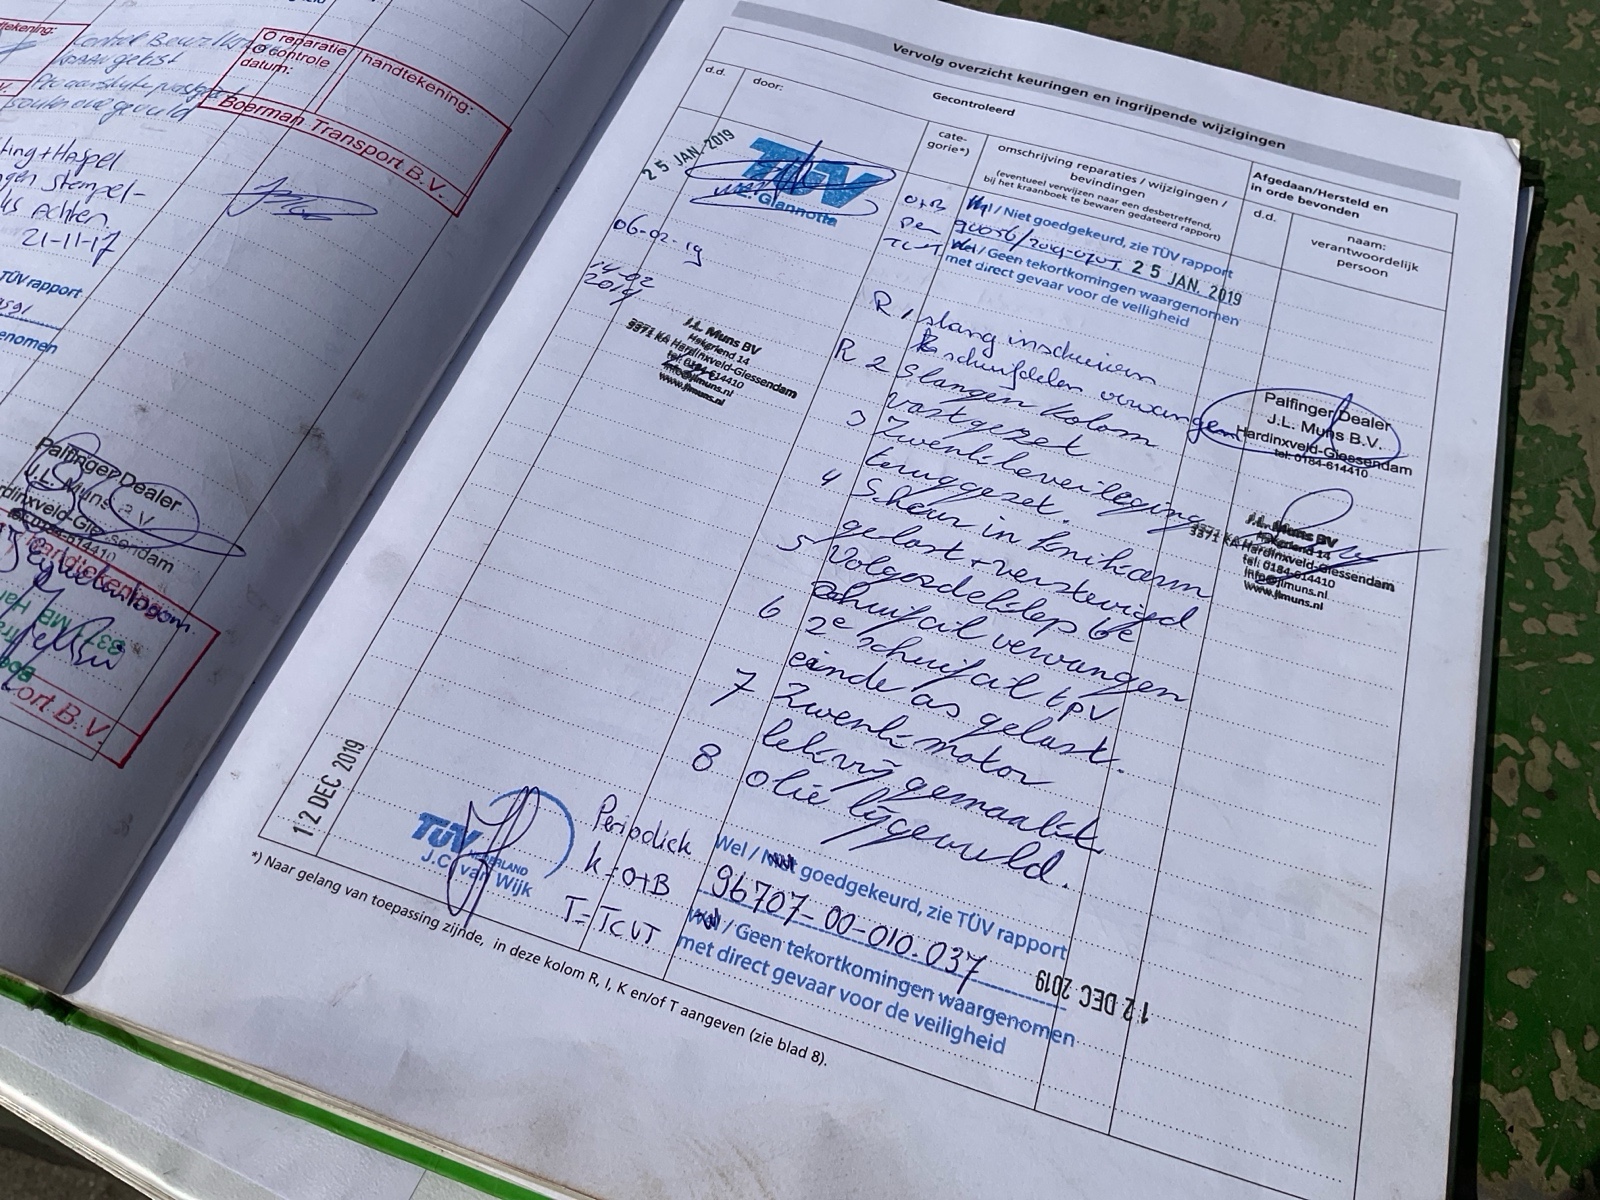 handtekening:
O reparatie
O controle
datum:
handtekening:
Boerman Transport B.V.
ting+Haspel
stempel-
Achten
21-11-17
TÜV rapport
enomen
Palfinger Dealer
J.L. Muns B.V.
Hardinxveld-Giessendam
0184-614410
handtekening:
ort B.V.
Vervolg overzicht keuringen en ingrijpende wijzigingen
d.d.
door:
Gecontroleerd
cate-
gorie*)
omschrijving reparaties / wijzigingen /
bevindingen
(eventueel verwijzen naar een desbetreffend,
bij het kraanboek te bewaren gedateerd rapport)
Afgedaan/Hersteld en
in orde bevonden
d.d.
naam:
verantwoordelijk
persoon
25 JAN. 2019
TÜV
E. Giannotta
O+B
Per
TCVT
Wel / Niet goedgekeurd, zie TÜV rapport
25 JAN. 2019
Wel / Geen tekortkomingen waargenomen
met direct gevaar voor de veiligheid
06-02-19
14-02
2019
J.L. Muns BV
Hakgriend 14
3371 KA Hardinxveld-Giessendam
tel: 0184-614410
info@jlmuns.nl
www.jlmuns.nl
R 1 slang inscheren
schuifdelen vervangen
R 2 Slangen kolom
vastgezet
3 Zwenkbeveiliging
teruggezet.
4 Scheur in knikarm
gelast + verstevigd
5 Volgordeklep 6e
schuifcil vervangen
6 2e schuifcil tpv
einde as gelast.
7 Zwenkmotor
lekvrij gemaakt
8 olie bijgevuld.
Palfinger Dealer
J.L. Muns B.V.
Hardinxveld-Giessendam
tel: 0184-614410
J.L. Muns BV
Hakgriend 14
3371 KA Hardinxveld-Giessendam
tel: 0184-614410
info@jlmuns.nl
www.jlmuns.nl
12 DEC 2019
TÜV NEDERLAND
J.C. van Wijk
Periodiek
K=O+B
T=TCVT
Wel / Niet goedgekeurd, zie TÜV rapport
96707-00-010.037
Wel / Geen tekortkomingen waargenomen
met direct gevaar voor de veiligheid
12 DEC 2019
*) Naar gelang van toepassing zijnde, in deze kolom R, I, K en/of T aangeven (zie blad 8).